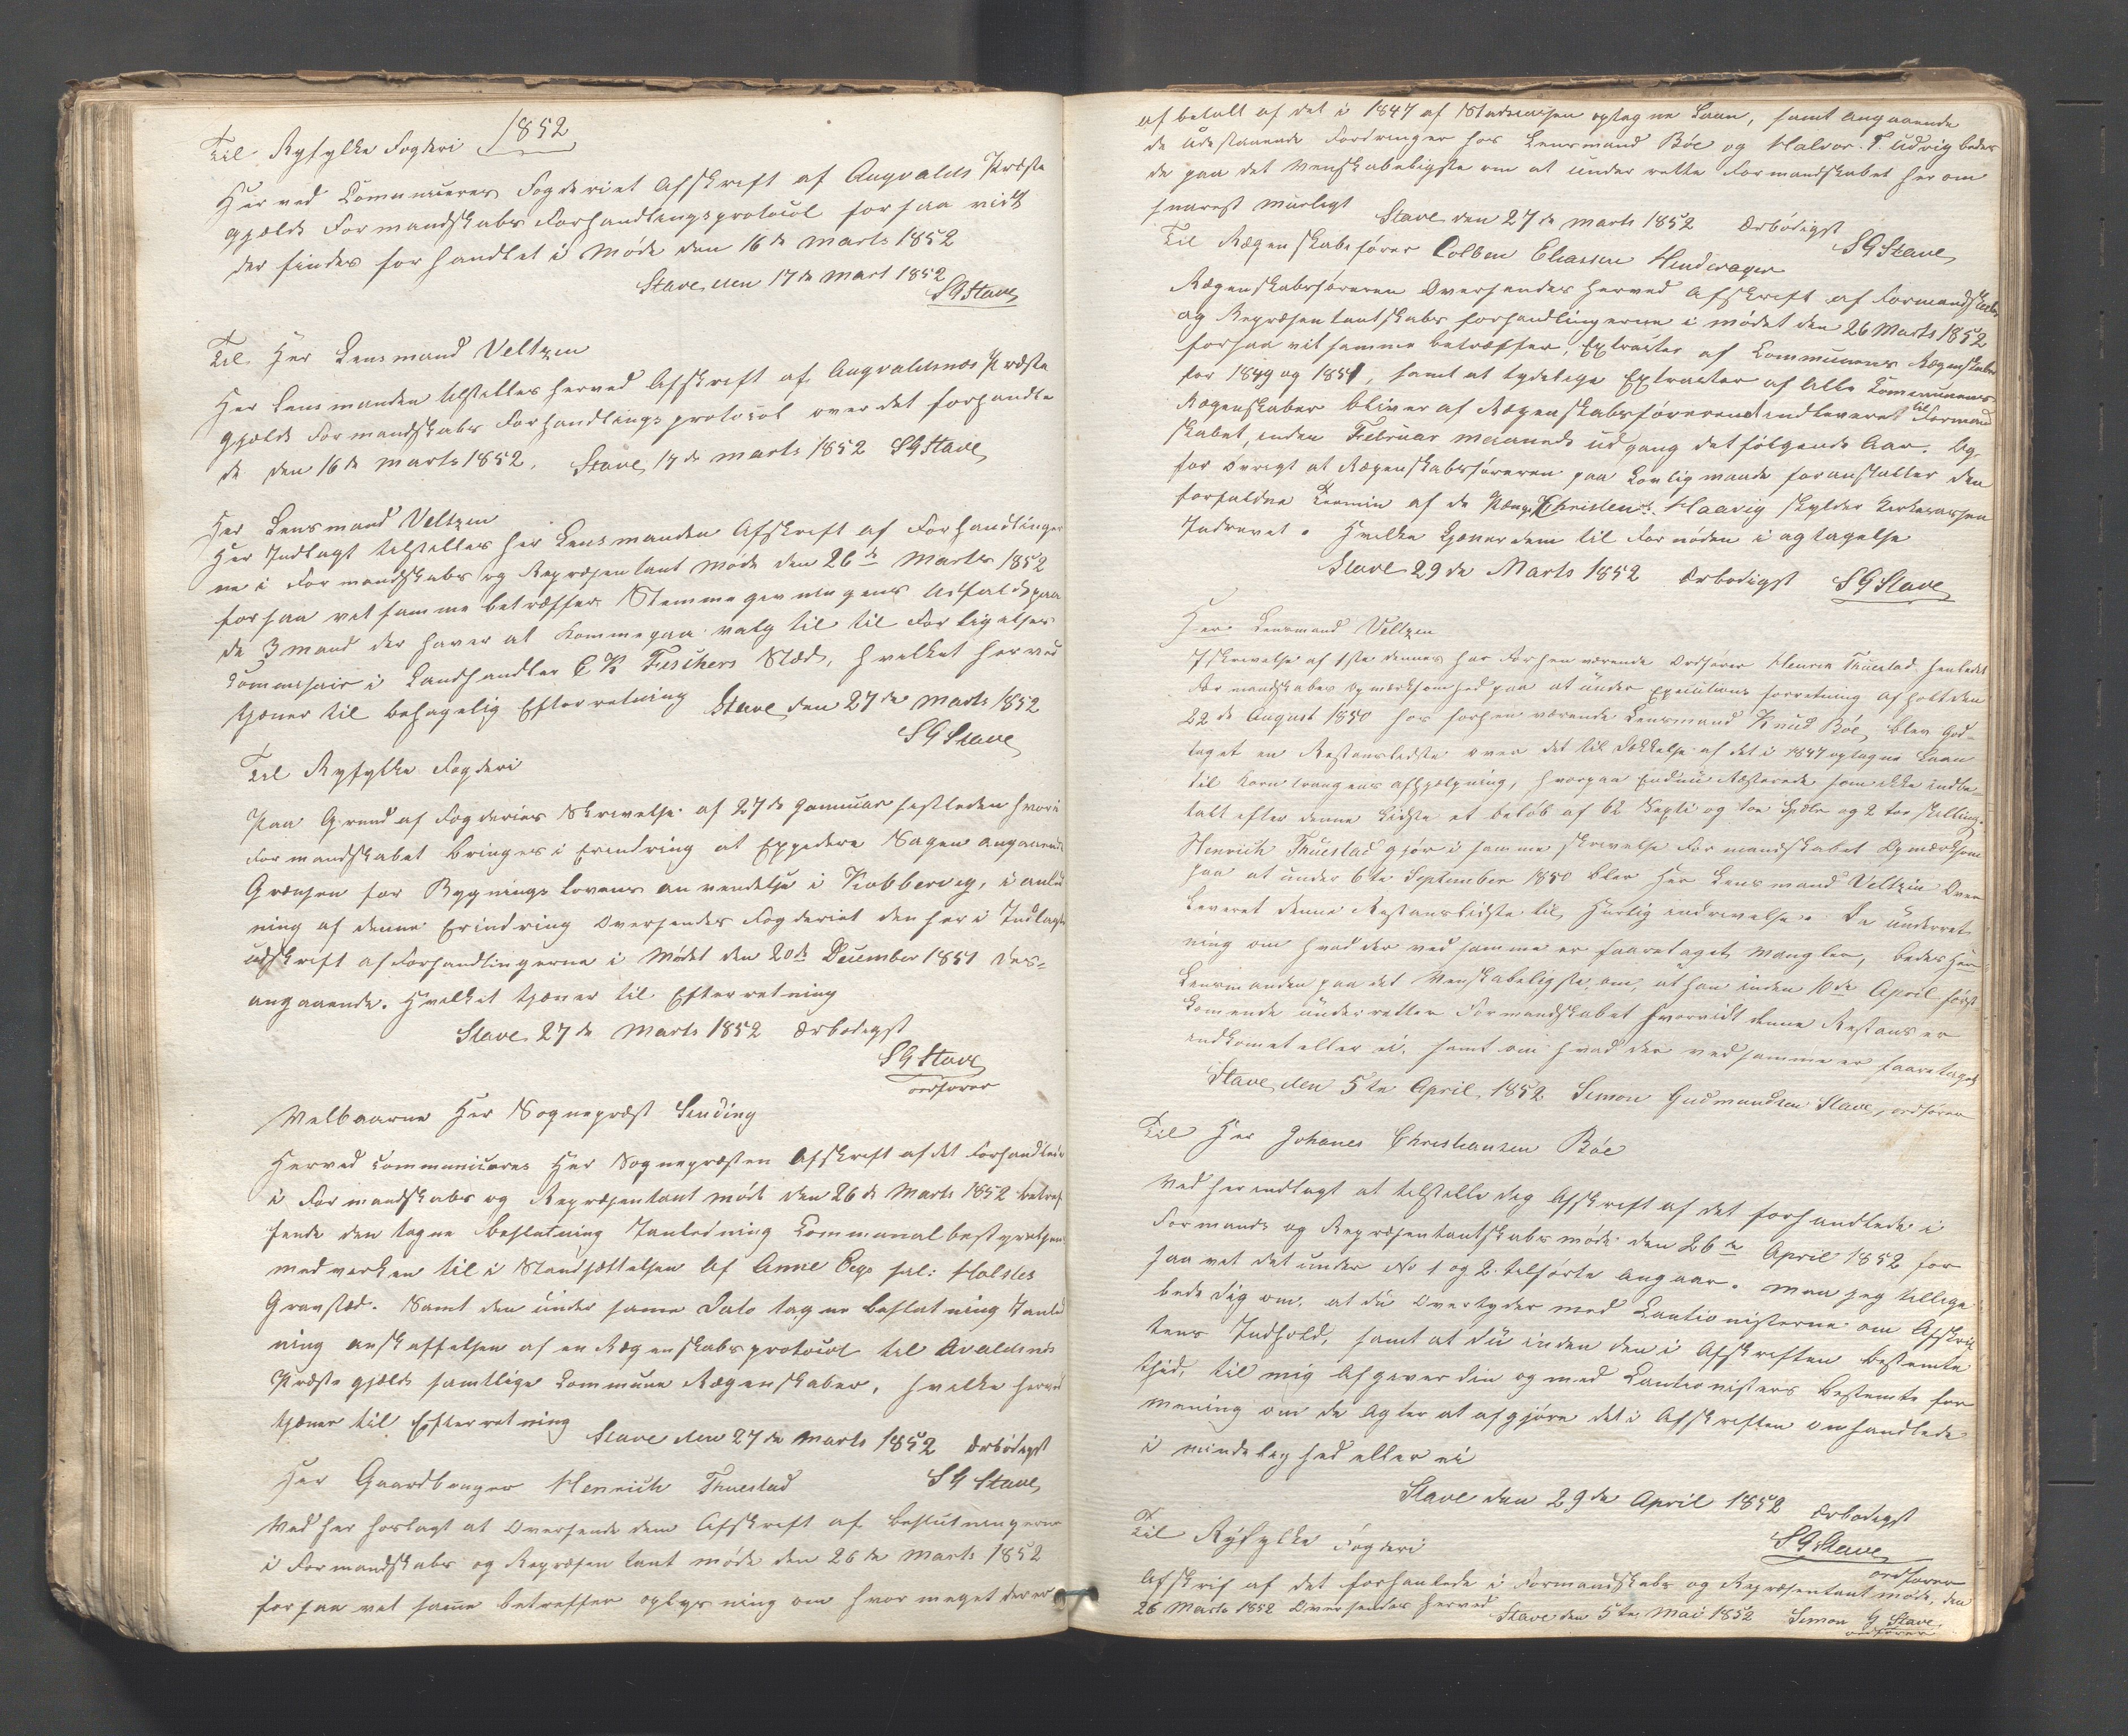 1852
Til Ryfylke Fogderi
Herved Communiceres Fogderiet Afskrift af Augvalds Præste
gjelds Formandskabs Forhandlingsprotocol forsaa vidt
der findes forhandlet i Møde den 16de Marts 1852
Stave den 17de Mart 1852
SGStave
Til Her Lensmand Veltzin
Her Lensmanden tilstilles herved Afskrift af Augvaldsnæs Præste
gjelds Formandskabs Forhandlings protocol over det forhandle
de den 16de Marts 1852. Stave 17de Marts 1852 SGStave
Her Lensmand Veltzin
Her Indlagt tilstilles her Lensmanden Afskrift af Forhandlinger
ne i Formandskabs og Repræsentant Møde den 26de Marts 1852
forsaa vet samme betræffer Stemmegivningens Udfald paa
de 3 mand der haver at komme paa valg til til Forligelses
Commisair i Landhandler C K Fuschers Stæd, hvilket herved
tjæner til behagelig Efterretning Stave den 27de Marts 1852
SGStave
Til Ryfylke Fogderi
Paa Grund af Fogderiets Skrivelse af 27de Januar sistleden hvori
Formandskabet bringes i Erindring at Expedere Sagen angaaende
Grænsen for Bygnings lovens anvendelse i Kobbervig, i anled
ning af denne Erindring Oversendes Fogderiet den her i Indlagte
udskrift af Forhandlingerne i Mødet den 20de December 1851 des=
angaaende. Hvilket tjæner til Efterretning
Stave 27de Marts 1852 Ærbødigst
SGStave
ordfører
Velbaarne Her Sognepræst Lending
Herved communiceres Her Sognepræsten Afskrift af det Forhandlede
i Formandskabs og Repræsentant møde den 26de Marts 1852 betræf
fende den tagne Beslutning Ianledning Communalbestyrelsen
medverken til i Standsættelsen af Anne Cegs sal: Holstes
Gravstæd. Samt den under same Dato tagne beslutning Ianled
ning anskaffelsen af en Regnskabsprotocol til Avaldsnes
Præstegjelds samtlige Commune Regnskaber, hvilke herved
tjæner til Efterretning Stave den 27de Marts 1852 Ærbødigst
SG Stave
Her Gaardbruger Henrich Thuestad
Ved her forlagt at Oversende dem Afskrift af beslutningerne
i Formandskabs og Repræsentant møde den 26de Marts 1852
forsaa vet same betreffer oplysning om hvor meget der er
af betalt af det i 1847 af Statscassen optagne Laan, samt angaaende
de Udestaaende Fordringer hos Lensmand Bøe og Halvor T. Udvig bedes
de paa det Venskabeligste om at underrette Formandskabet herom
snarest muligt Stave den 27de Marts 1852 Ærbødigst
SGStave
Til Regnskabsfører Colben Eliassen Hinderager
Regnskabsføreren Oversendes herved Afskrift af Formandskabs
og Repræsentantskabs forhandlingerne i mødet den 26 Marts 1852
forsaa vit samme betræffer, Extracter af Communens Regnskaber
for 1849 og 1851, samt at tydelige Extracter af Alle Communens
Regnskaber bliver af Regnskabsføreren indleveret til Formand
skabet, inden Februar maaneds udgang det følgende Aar. Og
for Øvrigt at Regnskabsføreren paa Lovlig maade foranstalter den
forfaldne Termin af de Penge Christen Haavig skylder Kirkecassen
Indrevet. Hvilke tjæner dem til fornøden iagtagelse
Stave 29de Marts 1852 Ærbødigst SGStave
Her Lensmand Veltzin
I skrivelse af 1ste dennes har forhenværende Ordfører Henrich Thuestad henledet
Formandskabets Opmærksomhed paa at under Executions forretning afholt den
22de August 1850 hos forhenværende Lensmand Knud Bøe, blev God=
taget en Restanseliste over det til Dækkelse af det i 1847 optagne Laan
til Korn trangens afhjælpning, hvorpaa Endnu Resterede som ikke indbe=
talt efter denne Lidste et beløb af 62 Septi og toe Spdlr og 2 toe skilling.
Henrich Thuestad gjør i samme skrivelse Formandskabet Opmærksom
paa at under 6te September 1850 blev Her Lensmand Veltzin Over
leveret denne Restanslidste til Hurtig indrivelse. Da underret
ning om hvad der ved samme er foretaget mangler, bedes Her
Lensmanden paa det Venskabeligste om, at han inden 10de April først
kommende underretter Formandskabet hvorvidt denne Restans er
indkomet eller ei, samt om hvad der ved samme er foretaget
Stave den 5te April 1852 Simon Gudmundsen Stave, ordfører
Til Her Johanes Christiansen Bøe
Ved herindlagt at tilstille dig Afskrift af det forhandlede i
Formands og Repræsentantskabs møde den 26de April 1852 for
saa vet det under No 1 og 2 tilførte angaar. Maa jeg tillige
bede dig om, at du Overtyder med Cautionisterne om Afskrif
tens Indhold, samt at du inden den i Afskriften bestemte
tiid, til mig afgiver din og med Cautionisters bestemte for
mening om de Agter at afgjøre det i Afskriften omhandlede
i mindelighed eller ei
Stave den 29de April 1852 Ærbødigst
SGStave
ordfører
Til Ryfylke Fogderi
Afskrif af det forhandlede i Formandskabs og Repræsentant møde, den
26 Marts 1852 Oversendes herved
Stave den 5te Mai 1852 Simon G Stave
ordfører